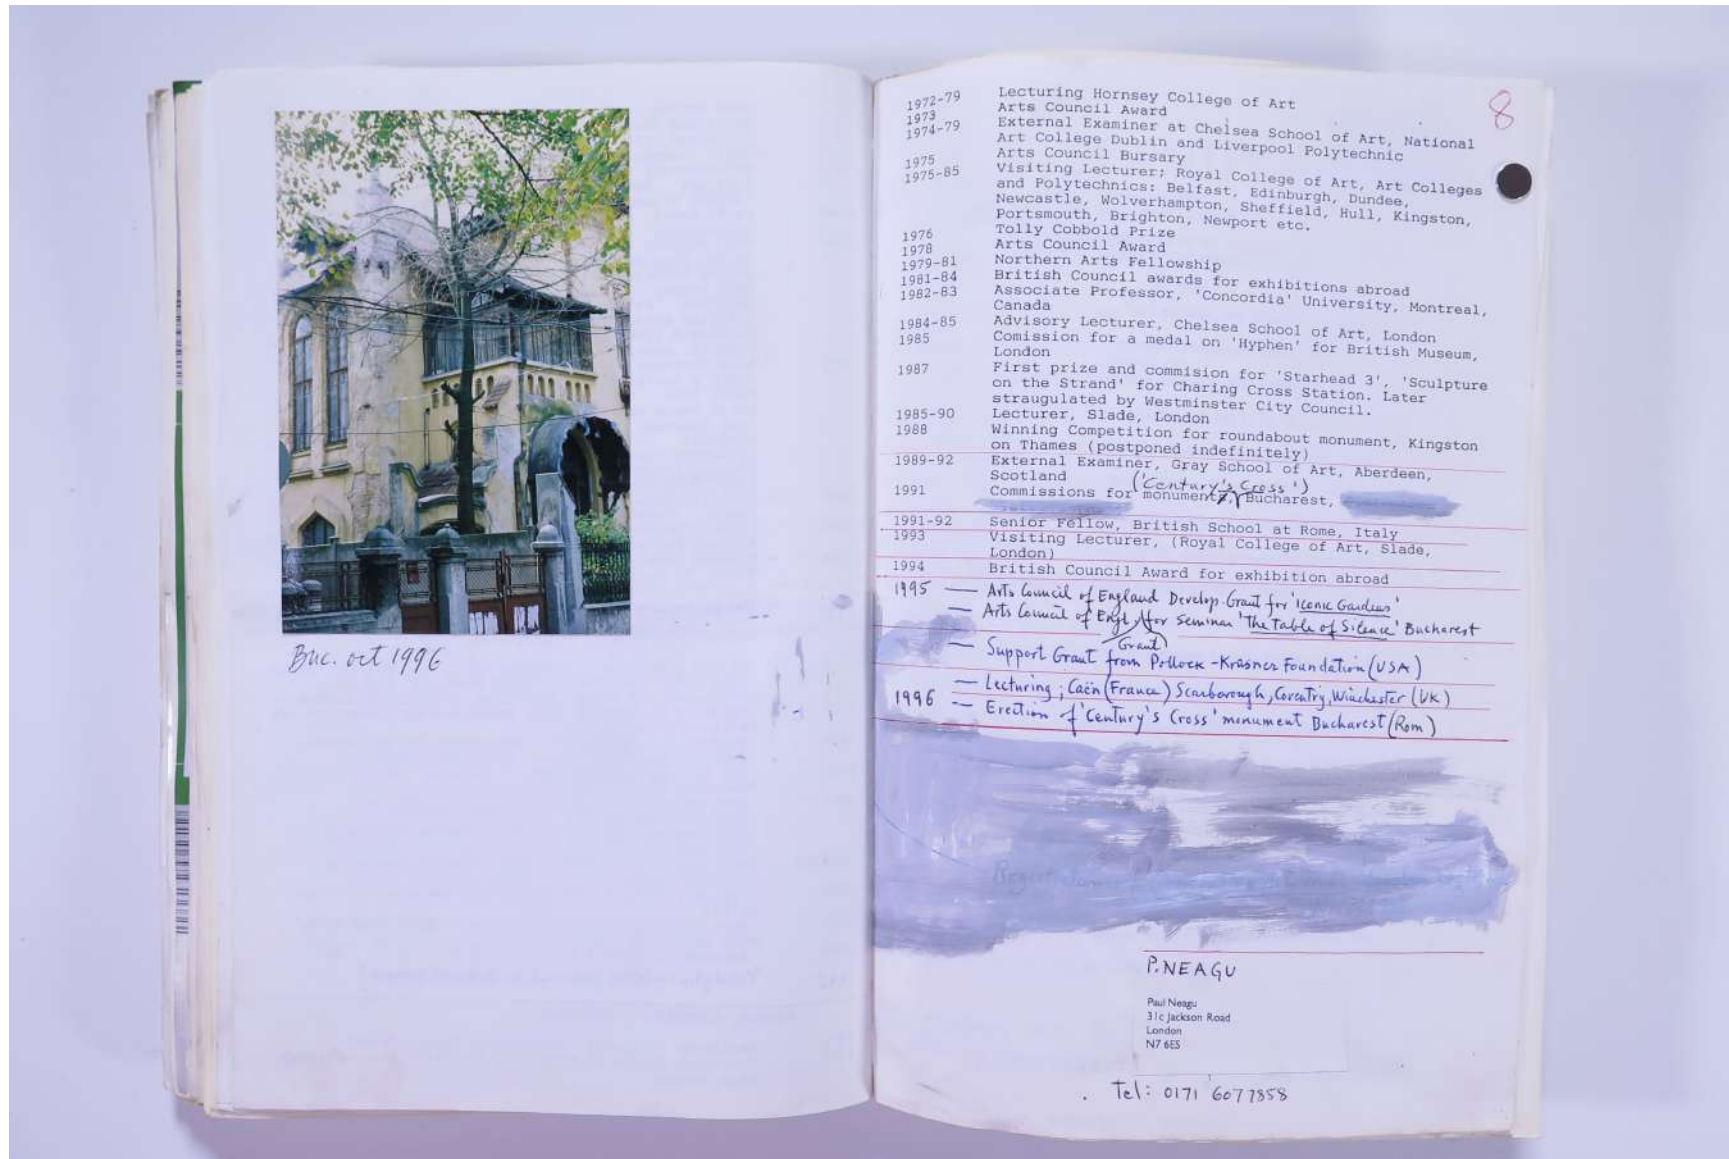 Buc. oct 1996
8
1972-79 Lecturing Hornsey College of Art
1973 Arts Council Award
1974-79 External Examiner at Chelsea School of Art, National
Art College Dublin and Liverpool Polytechnic
1975 Arts Council Bursary
1975-85 Visiting Lecturer; Royal College of Art, Art Colleges
and Polytechnics: Belfast, Edinburgh, Dundee,
Newcastle, Wolverhampton, Sheffield, Hull, Kingston,
Portsmouth, Brighton, Newport etc.
1976 Tolly Cobbold Prize
1978 Arts Council Award
1979-81 Northern Arts Fellowship
1981-84 British Council awards for exhibitions abroad
1982-83 Associate Professor, 'Concordia' University, Montreal,
Canada
1984-85 Advisory Lecturer, Chelsea School of Art, London
1985 Comission for a medal on 'Hyphen' for British Museum,
London
1987 First prize and commision for 'Starhead 3', 'Sculpture
on the Strand' for Charing Cross Station. Later
straugulated by Westminster City Council.
1985-90 Lecturer, Slade, London
1988 Winning Competition for roundabout monument, Kingston
on Thames (postponed indefinitely)
1989-92 External Examiner, Gray School of Art, Aberdeen,
Scotland
('Century's Cross')
1991 Commissions for monuments, Bucharest,
1991-92 Senior Fellow, British School at Rome, Italy
1993 Visiting Lecturer, (Royal College of Art, Slade,
London)
1994 British Council Award for exhibition abroad
1995 — Arts Council of England Develop. Grant for 'Iconic Gardens'
— Arts Council of Engl. for seminar 'The Table of Silence' Bucharest
Grant
— Support Grant from Pollock-Krasner Foundation (USA)
— Lecturing; Caën (France) Scarborough, Coventry, Winchester (UK)
1996 — Erection of 'Century's Cross' monument Bucharest (Rom)
P. NEAGU
Paul Neagu
31c Jackson Road
London
N7 6ES
Tel: 0171 6077858